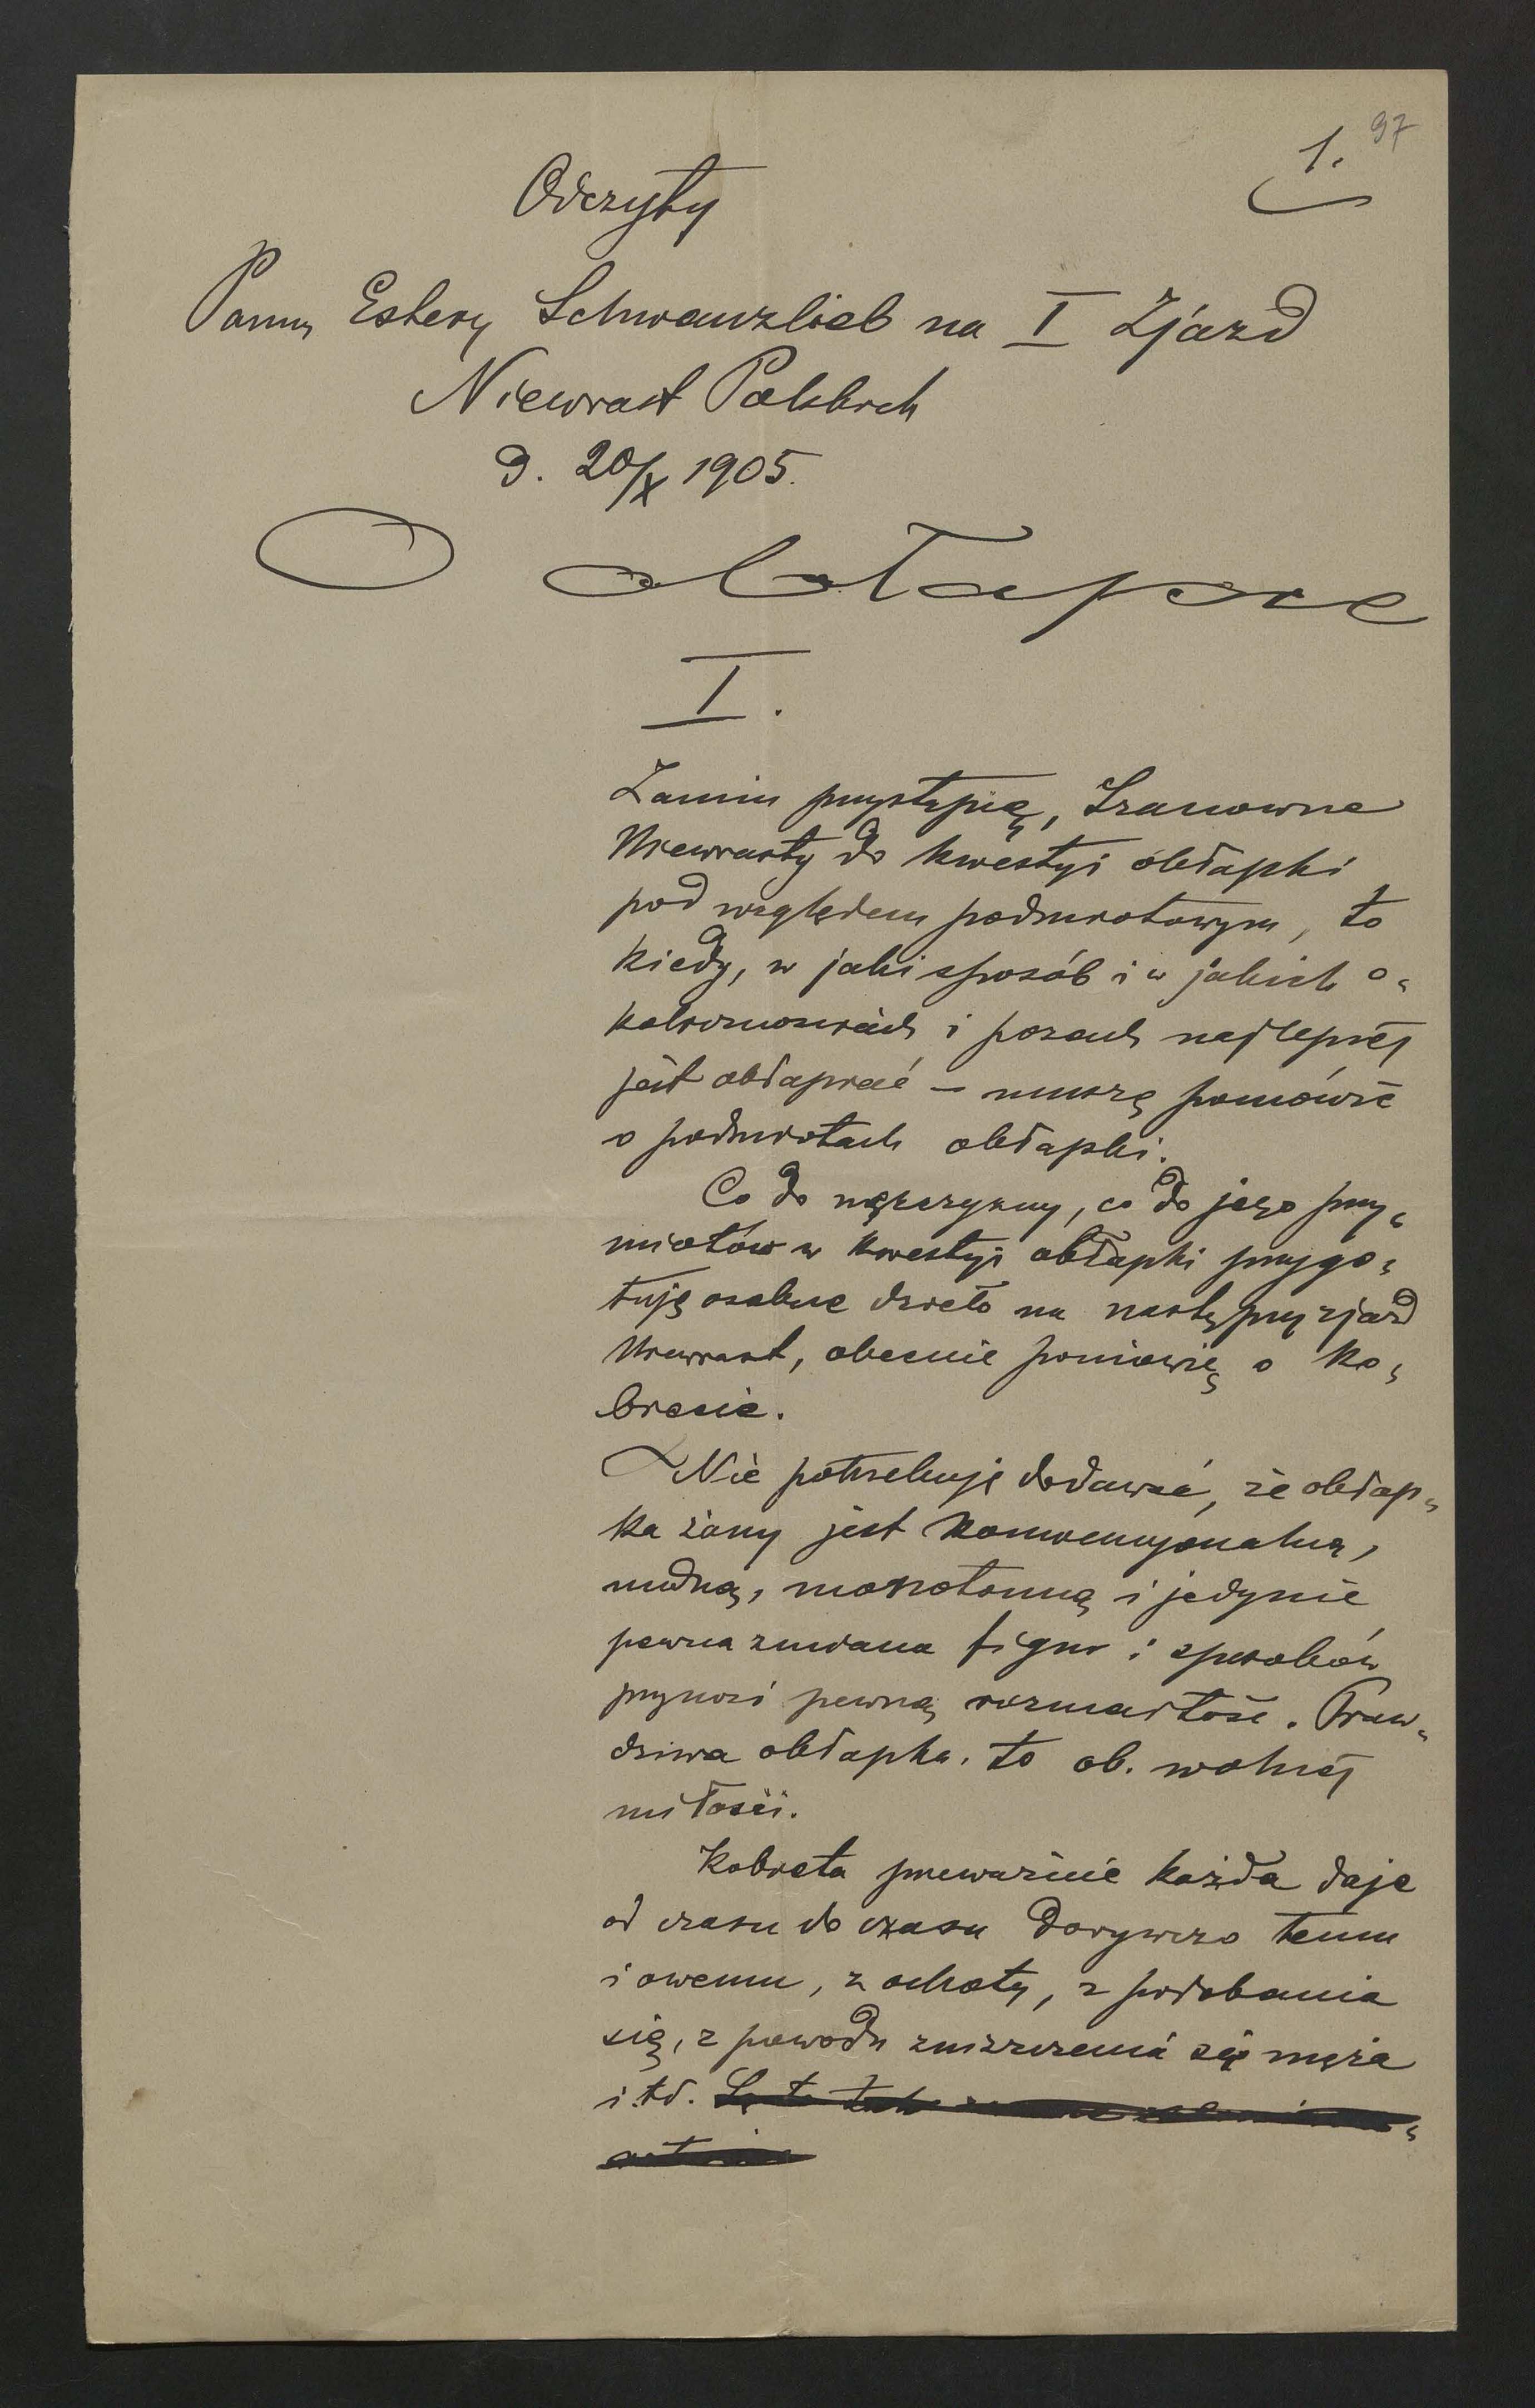 1. 97
Odczyty
Panny Estery Schwanzlieb na I Zjazd
Niewiast Polskich
d. 20/X 1905.
O obłapce
I.
Zanim przystąpię, Szanowne
Niewiasty do kwestyi obłapki
pod względem podmiotowym, to
kiedy, w jaki sposób i w jakich o-
kolicznościach i pozach najlepiej
jest obłapiać – muszę pomówić
o podmiotach obłapki.
Co do mężczyzny, co do jego przy-
miotów w kwestyi obłapki przygo-
tuję osobne dzieło na następny zjazd
Niewiast, obecnie pomówię o ko-
biecie.
Nie potrzebuję dodawać, że obłap-
ka żony jest konwencyonalną,
nudną, monotonną i jedynie
pewna zmiana figur i sposobów
przynosi pewną rozmaitość. Praw-
dziwa obłapka, to ob. wolnej
miłości.
Kobieta przeważnie każda daje
od czasu do czasu dorywczo temu
i owemu, z ochoty, z podobania
się, z powodu zniszczenia się męża
i td. Są to